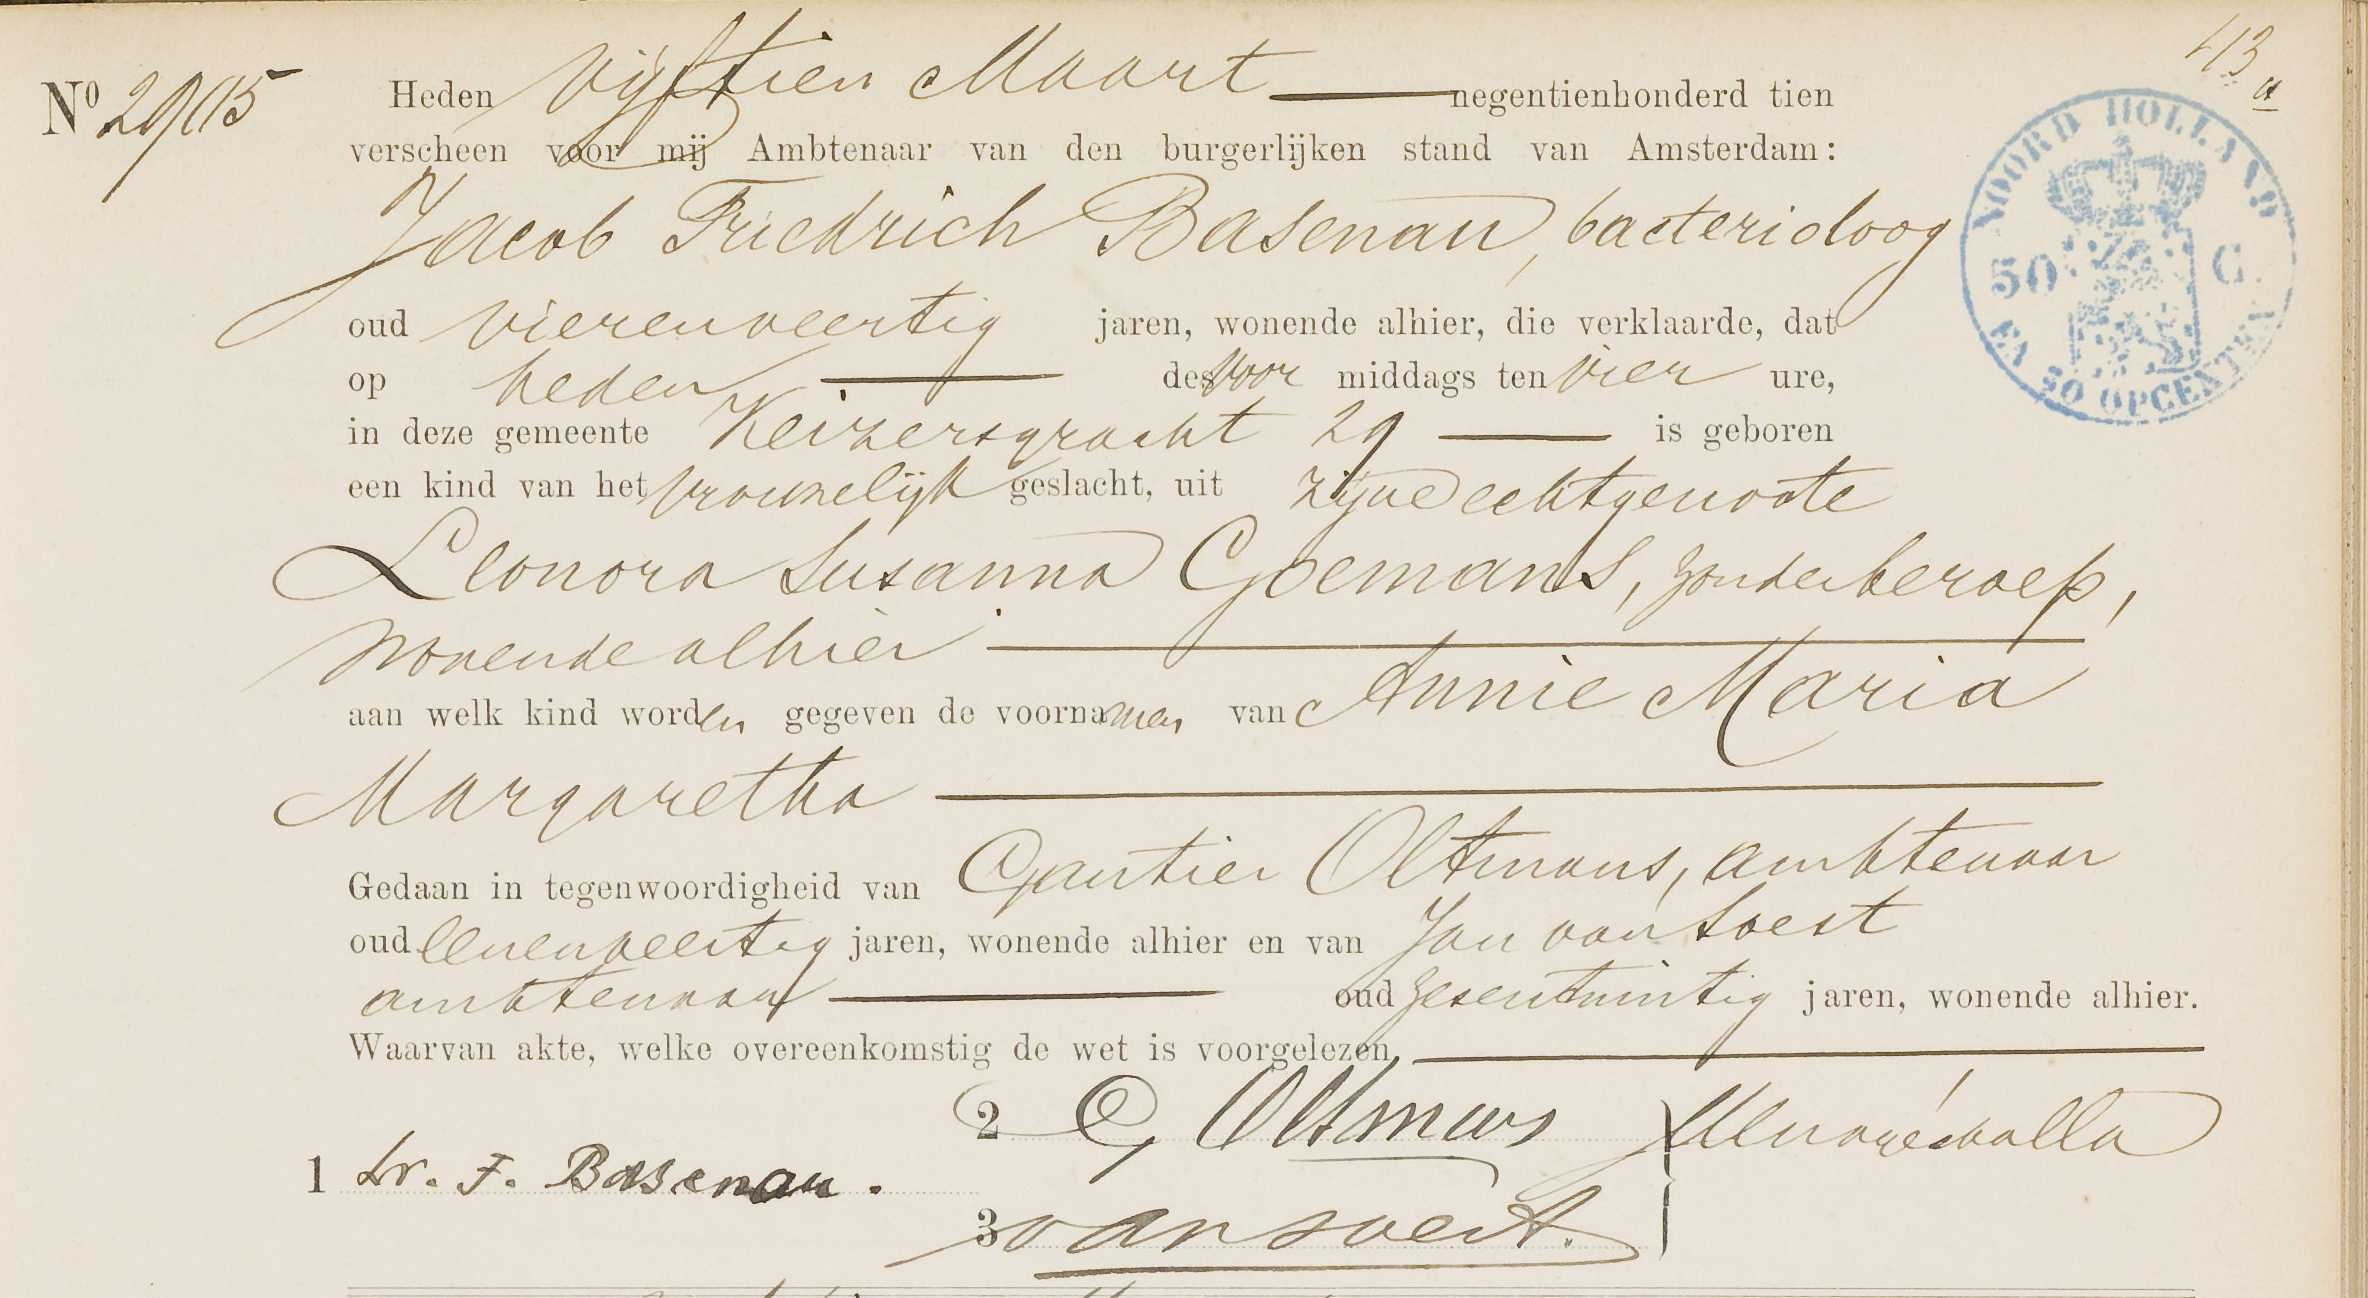 413
a
Nº 2905 Heden vijftien Maart negentienhonderd tien
verscheen voor mij Ambtenaar van den burgerlijken stand van Amsterdam:
Jacob Friedrich Basenau, bacterioloog
oud vierenveertig jaren, wonende alhier, die verklaarde, dat
op heden des voor middags ten vier ure,
in deze gemeente Keizersgracht 29 is geboren
een kind van het vrouwelijk geslacht, uit zijne echtgenoote
Leonora Susanna Goemans, zonder beroep,
wonende alhier
aan welk kind worden gegeven de voornamen van Annie Maria
Margaretha
Gedaan in tegenwoordigheid van Gautier Oltmans, ambtenaar
oud eenenveertig jaren, wonende alhier en van Jan van Soest
ambtenaar oud zesentwintig jaren, wonende alhier.
Waarvan akte, welke overeenkomstig de wet is voorgelezen
2 G Oltmans
1 Dr. F. Basenau.
3 van Soest.
NOORD HOLLAND
50 C.
EN 50 OPCENTEN